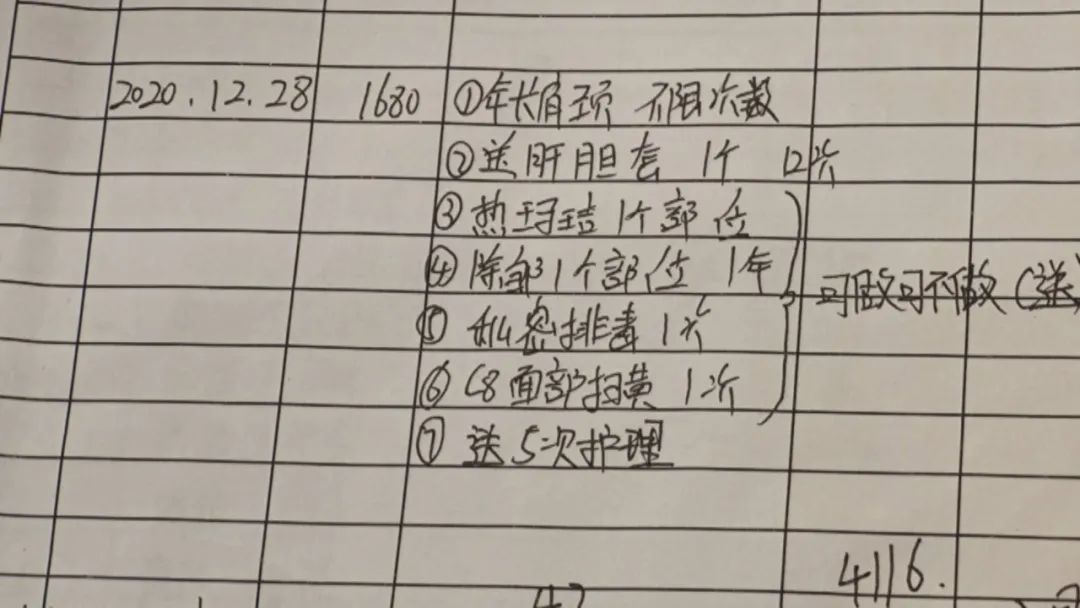 2020.12.28 1680 ①年长肩颈 不限次数
②送肝胆套 1个 12次
③热玛吉 1个部位
④除皱 1个部位 1年
可做可不做（送
⑤私密排毒 1次
⑥C8面部扫黄 1次
⑦送5次护理
4116.